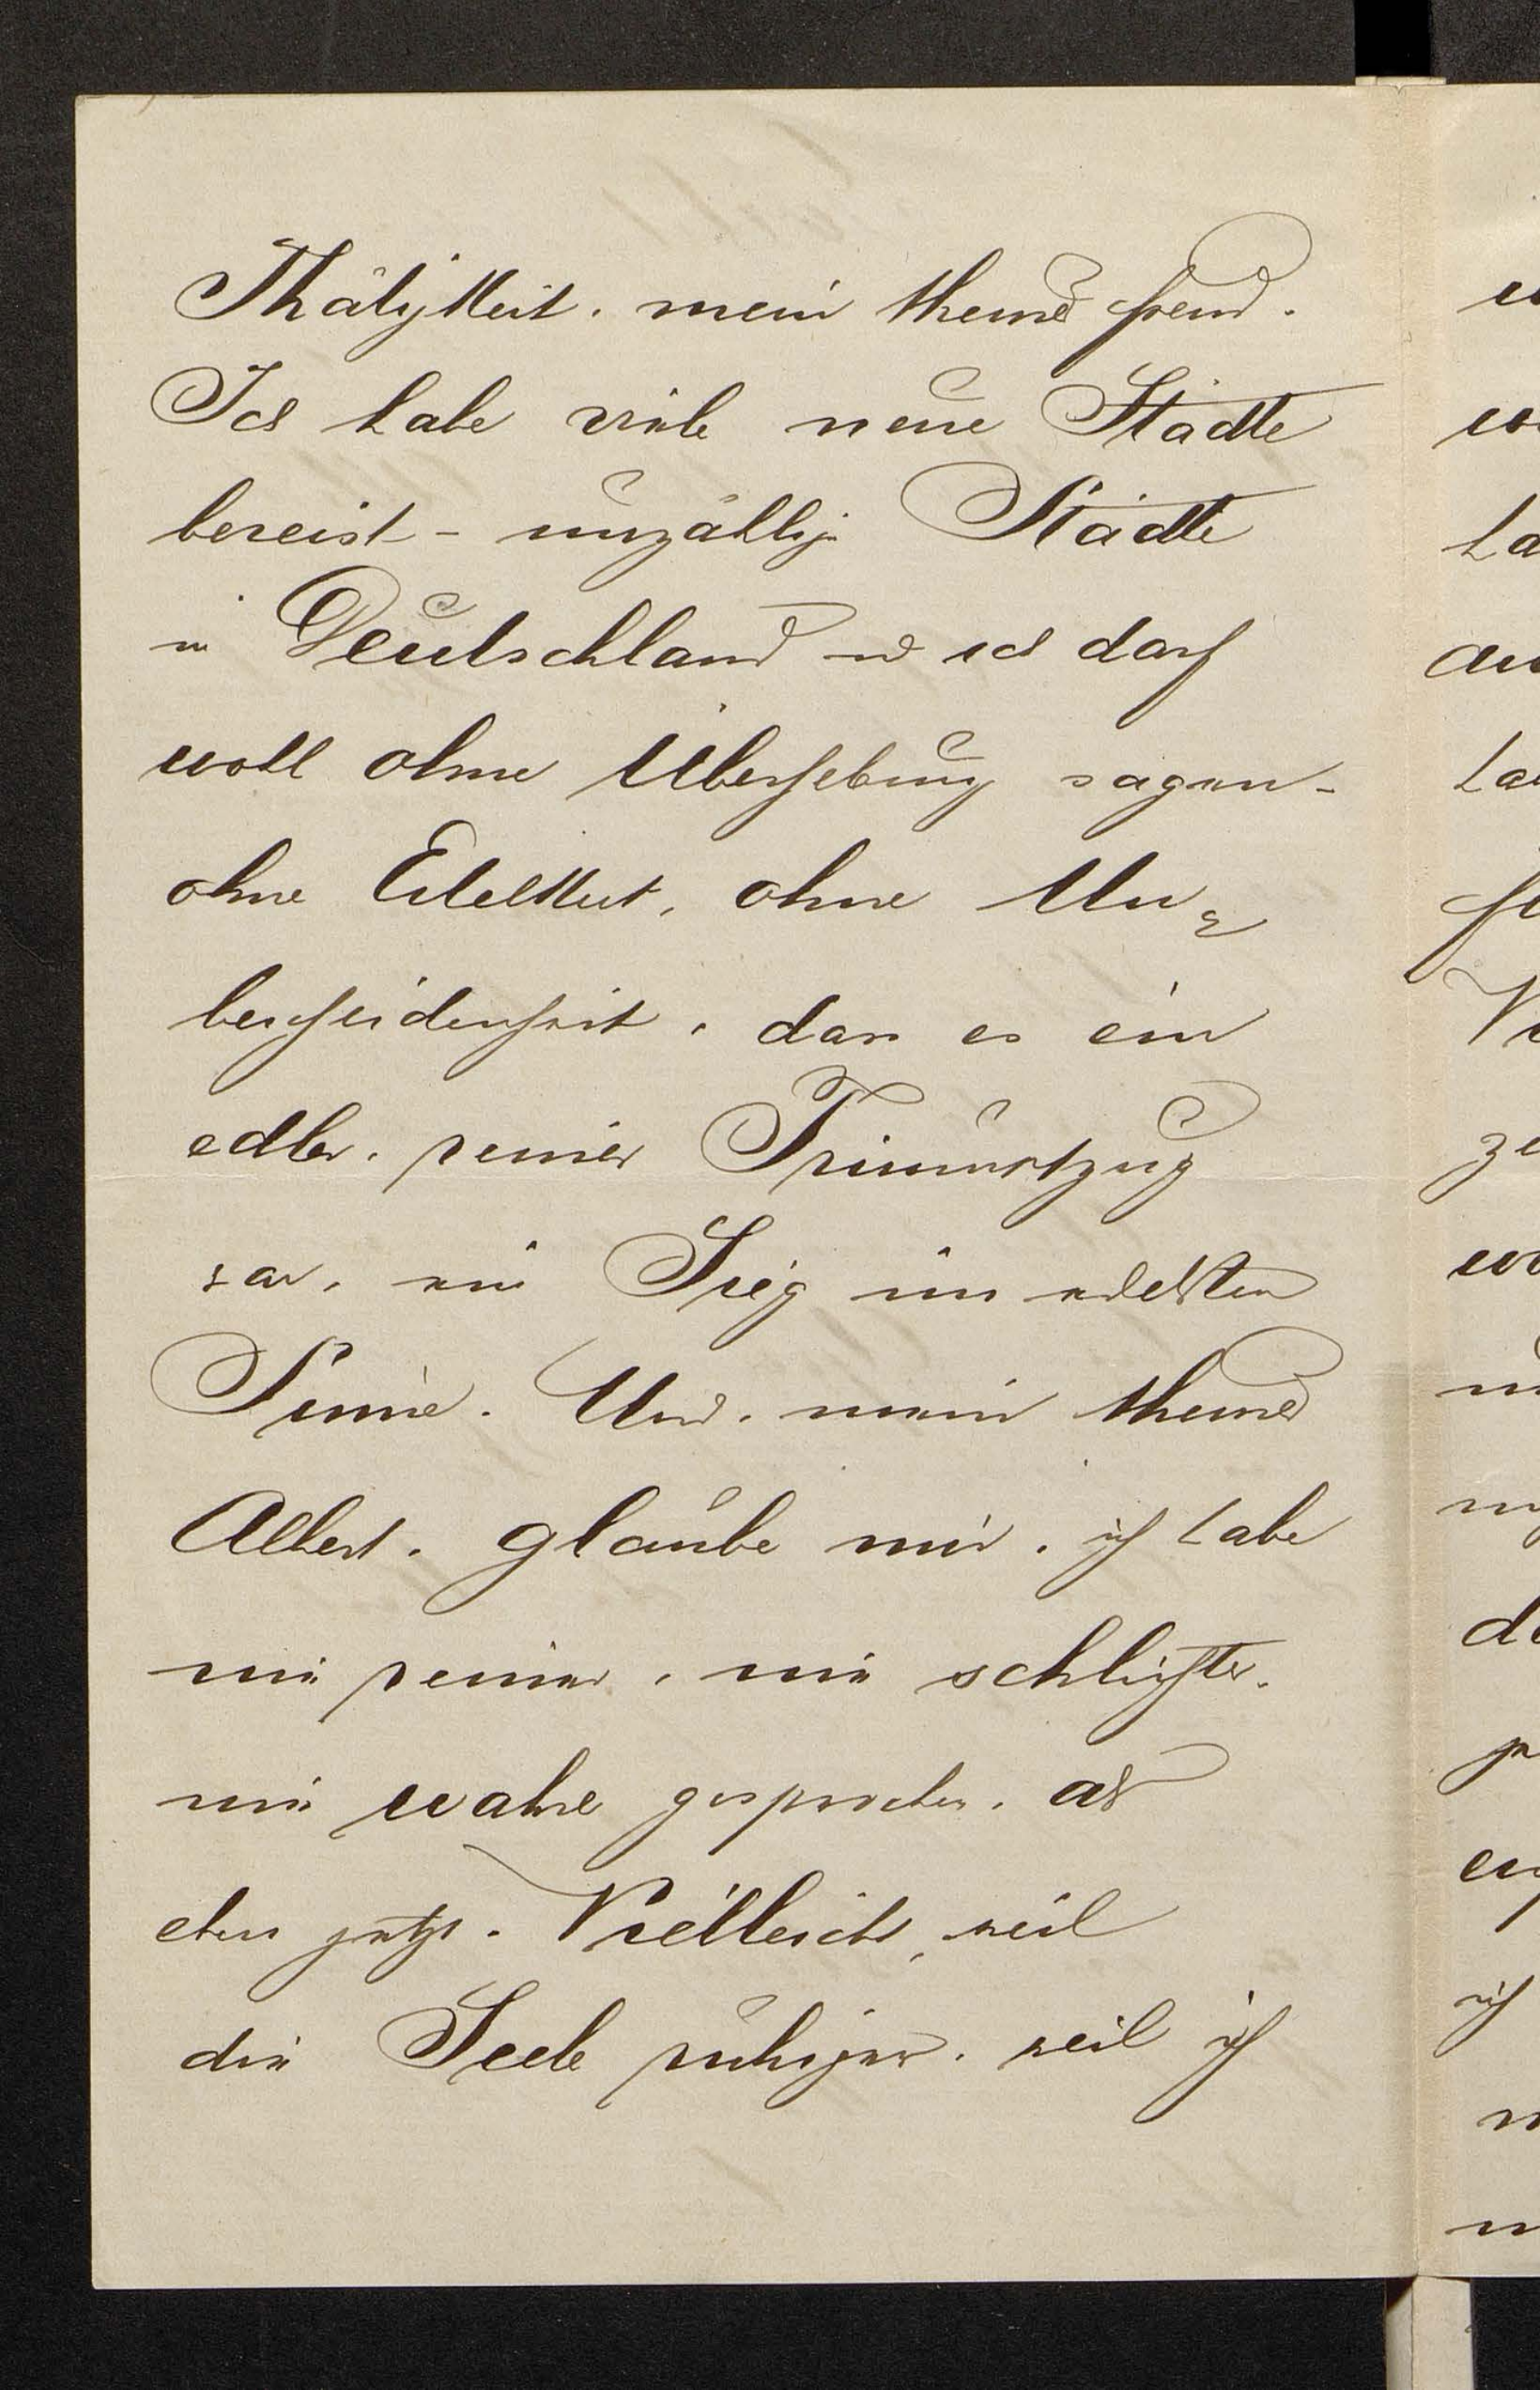 Thätigkeit, mein theurer Freund.
Ich habe viele neue Städte
bereist – unzählige Städte
in Deutschland und ich darf
wohl ohne Überhebung sagen –
ohne Eitelkeit, ohne Un=
bescheidenheit, dass es ein
edler, reiner Triumphzug
war, ein Sieg im edelsten
Sinne. Und, mein theurer
Albert, glaube mir, ich habe
nie reiner, nie schlichter,
nie wahrer gesprochen, als
eben jetzt. Vielleicht, weil
die Seele ruhiger, weil ich